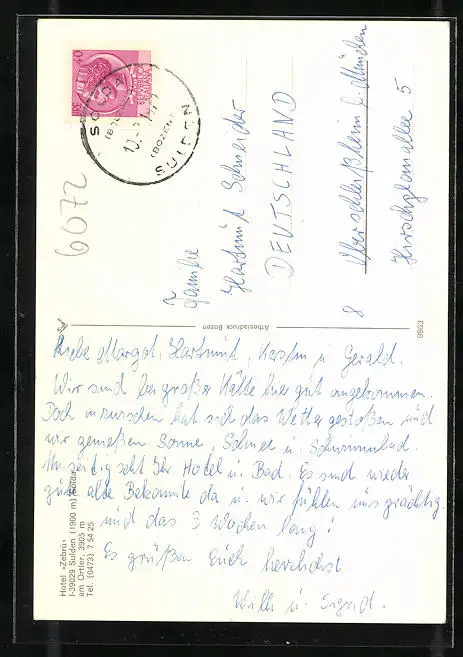 Liebe Margot, Hartmut, Kerstin u. Gerald.
Wir sind bei großer Kälte hier gut angekommen.
Doch inzwischen hat sich das Wetter gestoßen und
wir genießen Sonne, Schnee u. Schwimmbad.
seht Ihr Hotel u. Bad. Es sind wieder
gute alte Bekannte da u. wir fühlen uns prächtig
und das 3 Wochen lang!
Es grüßen Euch herzlichst
Willi u. Sigrid.
Familie
Hartmut Schneider
DEUTSCHLAND
8 Oberschleißheim b. München
Hirschplanallee 5
6672
SOLDA
SULDEN
(BOZEN)
40
Athesiadruck Bozen
9963
Hotel »Zebrù«
I-39029 Sulden (1900 m)
am Ortler, 3905 m
Tel. (0473) 7 54 25